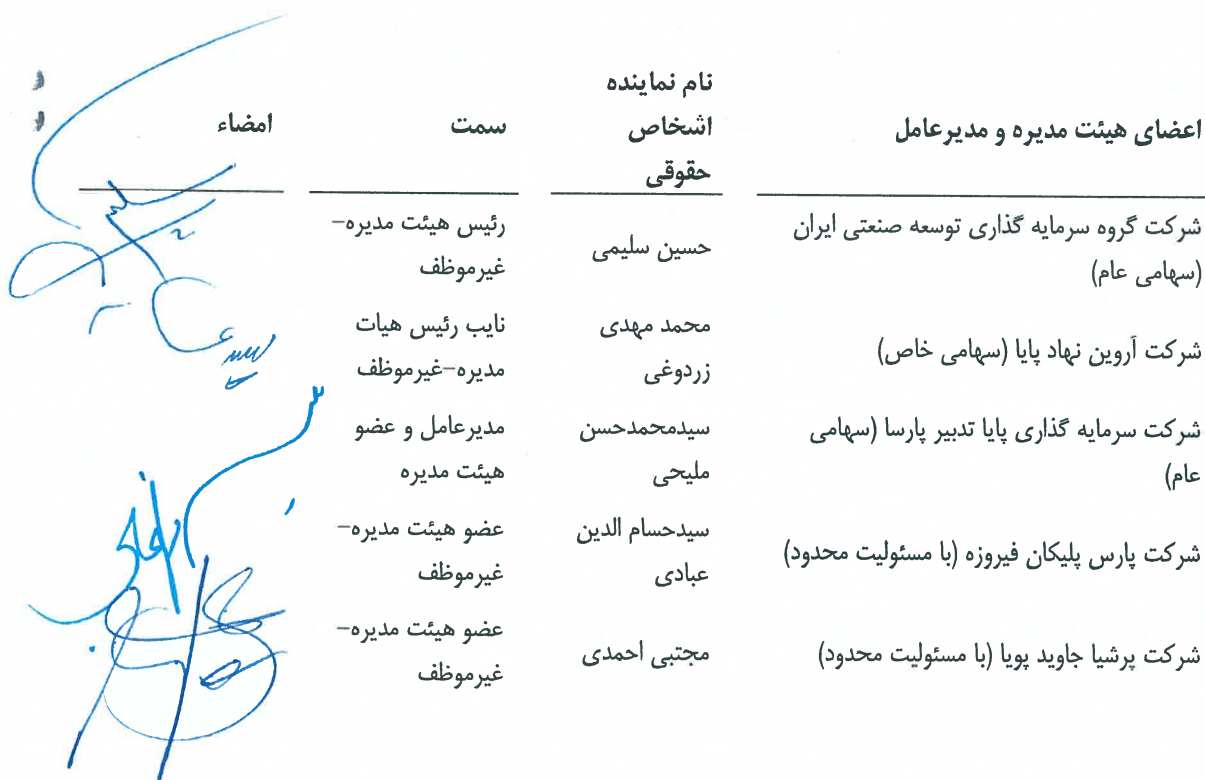 اعضای هیئت مدیره و مدیرعامل
نام نماینده
اشخاص
حقوقی
سمت
امضاء
شرکت گروه سرمایه گذاری توسعه صنعتی ایران
(سهامی عام)
حسین سلیمی
رئیس هیئت مدیره-
غیرموظف
شرکت آروین نهاد پایا (سهامی خاص)
محمد مهدی
زردوغی
نایب رئیس هیات
مدیره-غیرموظف
شرکت سرمایه گذاری پایا تدبیر پارسا (سهامی
عام)
سیدمحمدحسن
ملیحی
مدیرعامل و عضو
هیئت مدیره
شرکت پارس پلیکان فیروزه (با مسئولیت محدود)
سیدحسام الدین
عبادی
عضو هیئت مدیره-
غیرموظف
شرکت پرشیا جاوید پویا (با مسئولیت محدود)
مجتبی احمدی
عضو هیئت مدیره-
غیرموظف